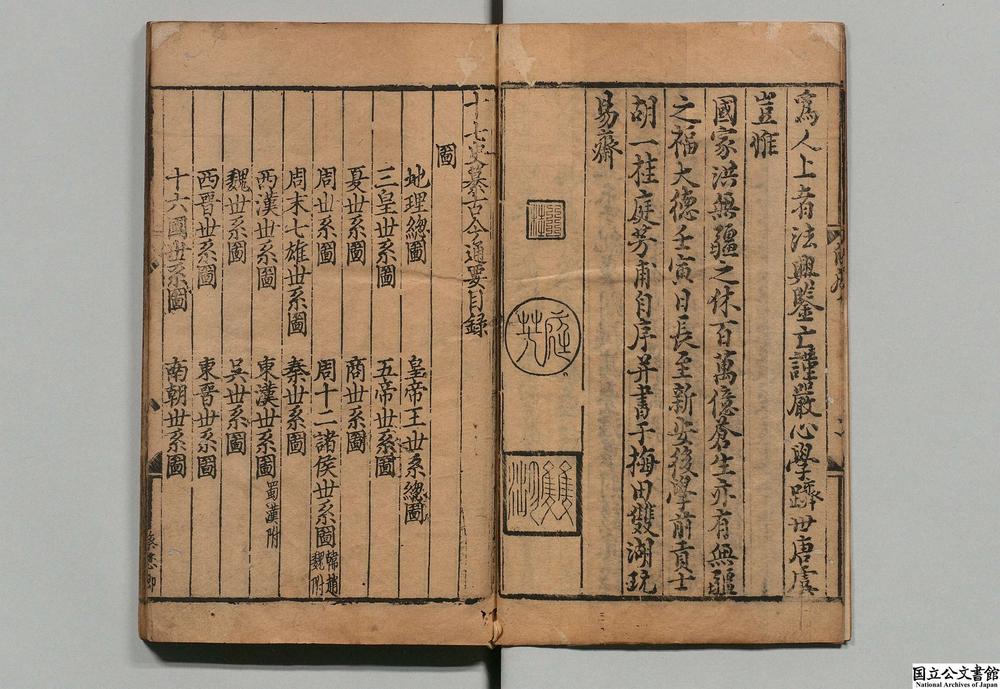 爲人上者法興鑒亡謹嚴心學躋丗唐虞
豈惟
國家洪無疆之休百萬億蒼生亦有無疆
之福大德壬寅日長至新安後學前貢士
胡一桂庭芳甫自序并書于梅田雙湖玩
易齋
庭芳
雙湖
十七史纂古今通要目録
圖
地理總圖
皇帝王丗系總圖
三皇丗系圖
五帝丗系圖
夏丗系圖
商丗系圖
周丗系圖
周十二諸侯丗系圖 韓趙魏附
周末七雄丗系圖
秦丗系圖
西漢丗系圖
東漢丗系圖 蜀漢附
魏丗系圖
吳丗系圖
西晉丗系圖
東晉丗系圖
十六國丗系圖
南朝丗系圖
国立公文書館
National Archives of Japan